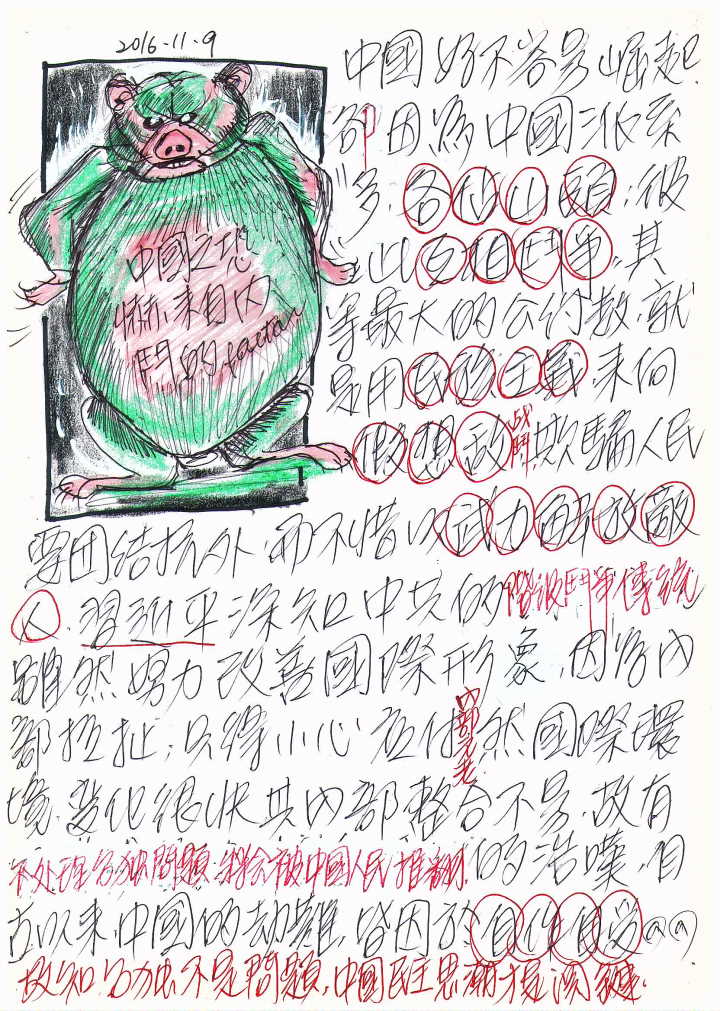 2016-11-9
中國之恐
嚇,來自仄人
鬥的 factor
中國好不容易崛起
卻因為中國派系
多,各位山頭,彼
此互相鬥爭,其
等最大的公約數,就
是用民族主義,來向
假想敵戰鬥,欺騙人民
要團結抗外,而不惜以武力解放敵
人,習近平深知中共的階級鬥爭傳統
雖然努力改善國際形象,因為內
部拉扯,只得小心應付內部元老,然國際環
境,變化很快,其內部整合不易,故有
不處理台獨問題,將會被中國人民推翻,的浩嘆,自
古以來,中國的劫難,皆因於自作自受
故知台獨不是問題,中國民主思潮才是關鍵.